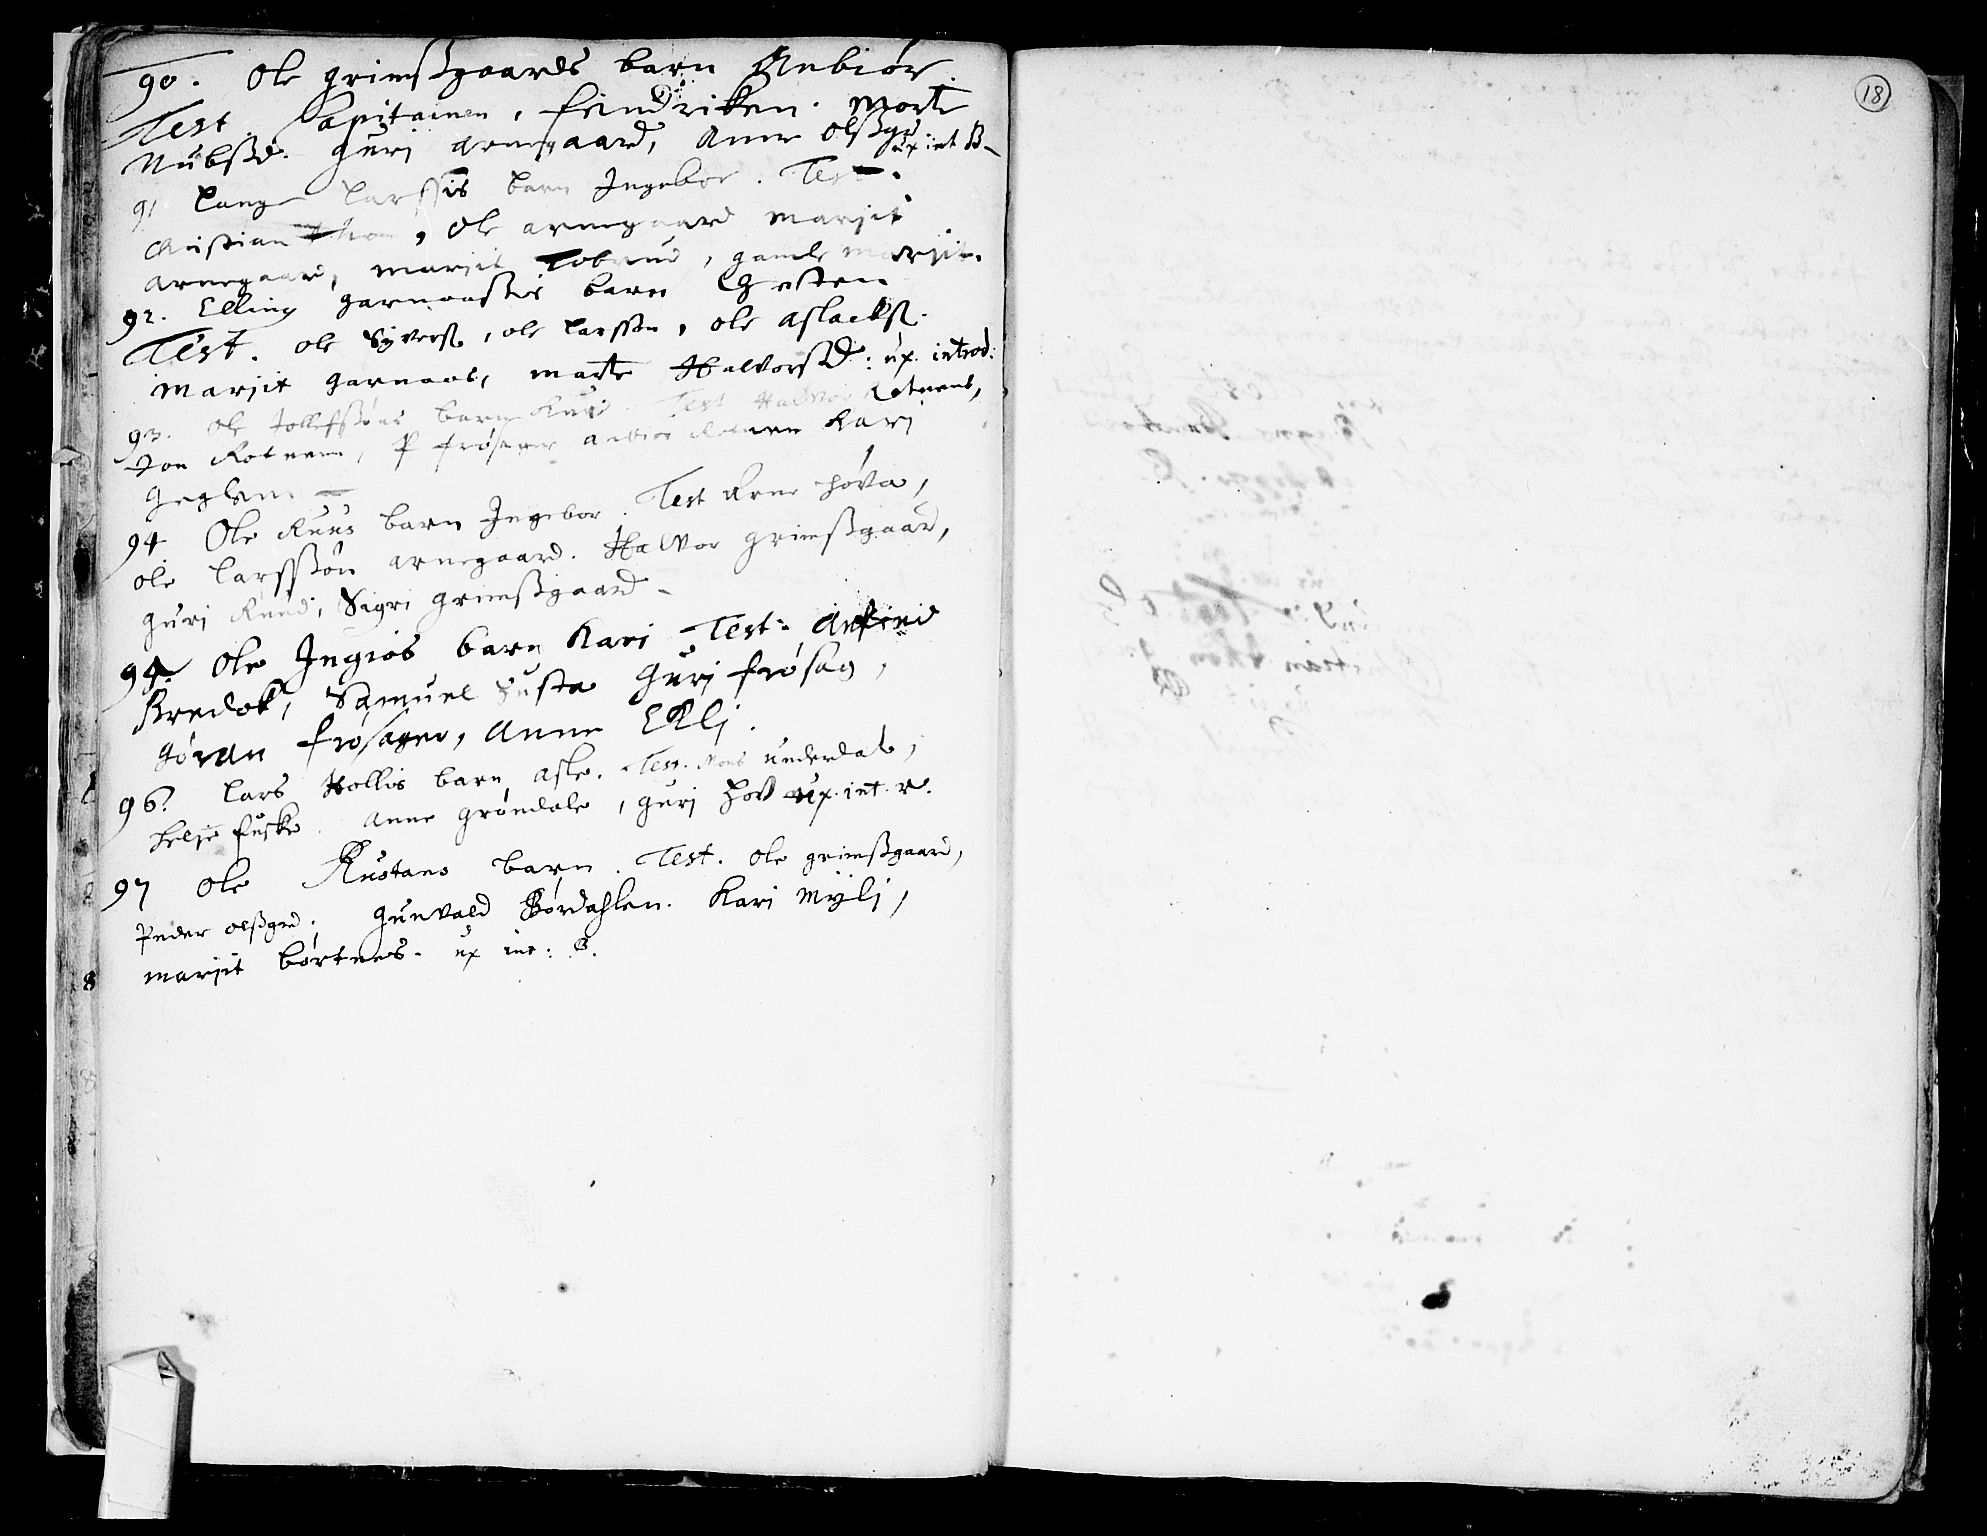 90. Ole grimsßgaards barn Anbiør.
Test Capitainen, feindricken. Marte
Nubsßd. Gurj Arnegaard, Anne olsßgr. ux int B
91 Lange Larssis barn Ingebor. Test.
Christian Thon, Ole arnegaard marjit
arnegaard, marjit Tobrud, gamle marjit.
92. Elling garnaasis barn Gesten
Test. ole Syvers, ole larssen, ole aslacks.
Marjit garnaas, marte Halvorsd: ux. introd:
93. ole Tollefssøns barn Test Halvor Rotnens,
Jon Rotnem, P frøsager anbiør Kari
Geglem
94 Ole Ruus barn Ingebor. Test Arne Høva,
ole larssøn arnegaard. Halvor grimsßgaard,
Gurj Ruud, Sigri grimsßgaard
95. Ole Ingiøs barn Kari Test. Arfind
Bredok, Samuel Susta Gurj frøsag,
Jøran frøsager, Anne Eklj.
96. Lars Hollis barn asle. Test. underdal,
helje fuske. Anne grøndale, gurj Hov ux. int. r.
97 Ole Rustans barn. Test. Ole grimsßgaard,
Peder olsßgrd; Gunvald Børdahlen. Kari Mylj,
marjit børtnes. ux int: B.
18